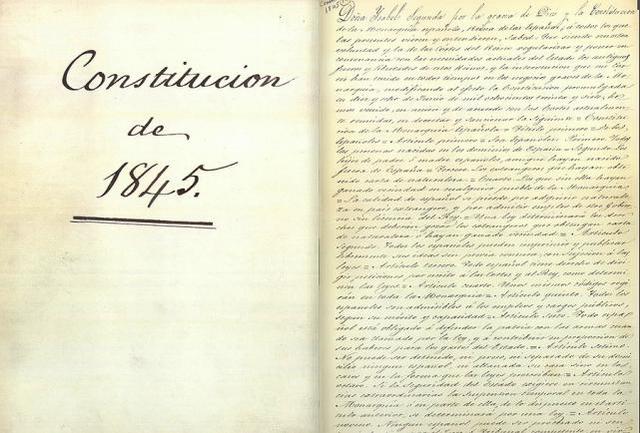 Constitucion
de
1845.
Doña Isabel Segunda por la gracia de Dios y la Constitucion
de la Monarquia española, Reina de las Españas; á todos los que
las presentes vieren y entendieren, sabed: Que siendo nuestra
voluntad y la de las Cortes del Reino regularizar y poner en
consonancia con las necesidades actuales del Estado los antiguos
fueros y libertades de estos Reinos, y la intervencion que sus Cor-
tes han tenido en todos tiempos en los negocios graves de la Mo-
narquia, modificando al efecto la Constitucion promulgada
en diez y ocho de Junio de mil ochocientos treinta y siete, he-
mos venido, en union y de acuerdo con las Cortes actualmen-
te reunidas, en decretar y sancionar la siguiente = Constitu-
cion de la Monarquia Española = Título primero = De los
Españoles = Artículo primero = Son Españoles: Primero. Todas
las personas nacidas en los dominios de España = Segundo. Los
hijos de padre ó madre españoles, aunque hayan nacido
fuera de España = Tercero. Los extrangeros que hayan obte-
nido carta de naturaleza = Cuarto. Los que sin ella hayan
ganado vecindad en cualquier pueblo de la Monarquia
= La calidad de español se pierde por adquirir naturale-
za en pais extrangero, y por admitir empleo de otro Gobier-
no sin licencia del Rey = Una ley determinará los dere-
chos que deberán gozar los extrangeros que obtengan carta
de naturaleza ó hayan ganado vecindad = Artículo
Segundo. Todos los españoles pueden imprimir y publicar
libremente sus ideas sin previa censura, con sujecion á las
leyes = Artículo tercero. Todo español tiene derecho de diri-
gir peticiones por escrito á las Cortes y al Rey, como determi-
nen las leyes = Artículo cuarto. Unos mismos códigos regi-
rán en toda la Monarquia = Artículo quinto. Todos los
españoles son admisibles á los empleos y cargos públicos,
segun su mérito y capacidad = Artículo sexto. Todo espa-
ñol está obligado á defender la patria con las armas cuan-
do sea llamado por la ley, y á contribuir en proporcion de
sus haberes para los gastos del Estado = Artículo sétimo.
No puede ser detenido, ni preso, ni separado de su domi-
cilio ningun español, ni allanada su casa sino en los
casos y en la forma que las leyes prescriban = Artículo
octavo. Si la seguridad del Estado exigiere en circunstan-
cias extraordinarias la suspension temporal en toda la
Monarquia ó en parte de ella, de lo dispuesto en el artí-
culo anterior, se determinará por una ley = Artículo
noveno. Ningun español puede ser procesado ni sen-